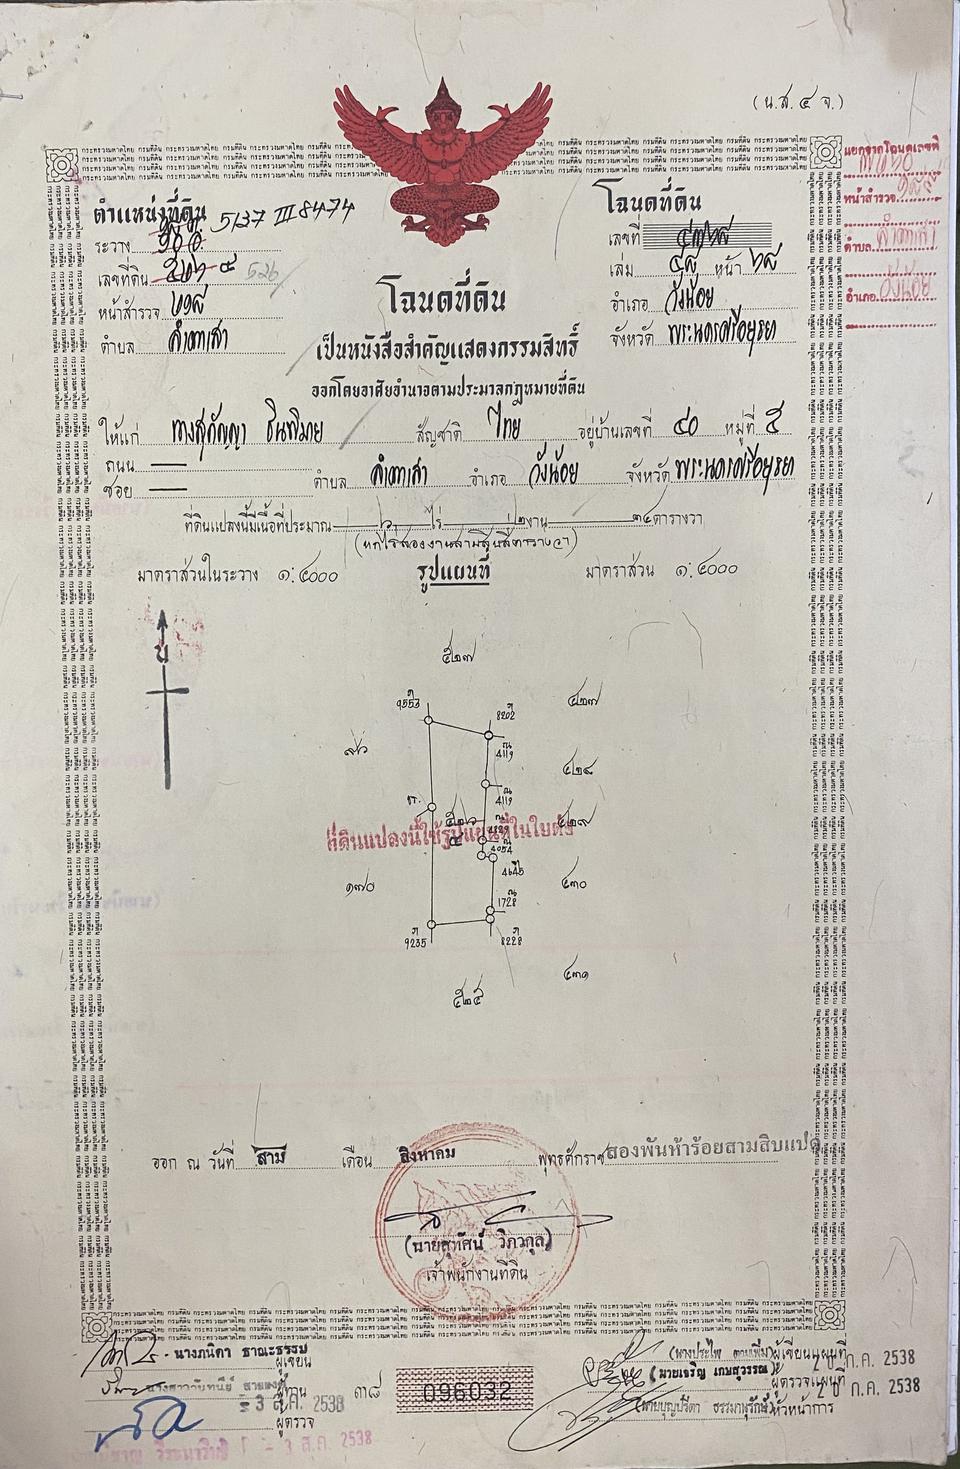 (น.ส. ๔ จ.)
ตำแหน่งที่ดิน
ระวาง 5137 III 8474
เลขที่ดิน 526
หน้าสำรวจ
ตำบล ลำตาเสา
โฉนดที่ดิน
เลขที่
เล่ม ๔๘ หน้า ๒๘
อำเภอ วังน้อย
จังหวัด พระนครศรีอยุธยา
แยกจากโฉนดเลขที่
หน้าสำรวจ
ตำบล ลำตาเสา
อำเภอ วังน้อย
โฉนดที่ดิน
เป็นหนังสือสำคัญแสดงกรรมสิทธิ์
ออกโดยอาศัยอำนาจตามประมวลกฎหมายที่ดิน
ให้แก่ นางสุกัญญา สัญชาติ ไทย อยู่บ้านเลขที่ ๔๐ หมู่ที่ ๕
ถนน —
ซอย — ตำบล ลำตาเสา อำเภอ วังน้อย จังหวัด พระนครศรีอยุธยา
ที่ดินแปลงนี้มีเนื้อที่ประมาณ ๖ ไร่ ๒ งาน ๓๔ ตารางวา
(หกไร่สองงานสามสิบสี่ตารางวา)
มาตราส่วนในระวาง ๑:๔๐๐๐ รูปแผนที่ มาตราส่วน ๑:๔๐๐๐
น
๕๒๗
9553
8202
๔๒๗
๙๖
4119
๔๒๘
4119
๕๒๖
4829
๔๒๙
ที่ดินแปลงนี้ใช้รูปแผนที่ในใบต่อ
๔
4054
4645
๑๗๐
๔๓๐
1728
9235
8228
๔๓๑
๕๒๕
ออก ณ วันที่ สาม เดือน สิงหาคม พุทธศักราช สองพันห้าร้อยสามสิบแปด
(นายสุทัศน์ วิภวกุล)
เจ้าพนักงานที่ดิน
นางภนิดา ธาณะธรรม ผู้เขียน
ผู้ทาน
- 3 ส.ค. 2538
ผู้ตรวจ
- 3 ส.ค. 2538
๓๘
096032
(นางประไพ ตามเพิ่ม) ผู้เขียนแผนที่
(นายเจริญ เกษสุวรรณ) ผู้ตรวจแผนที่ 2 0 ก.ค. 2538
(นายบุญปรีดา ธรรมานุรักษ์) หัวหน้าการ 2 0 ก.ค. 2538